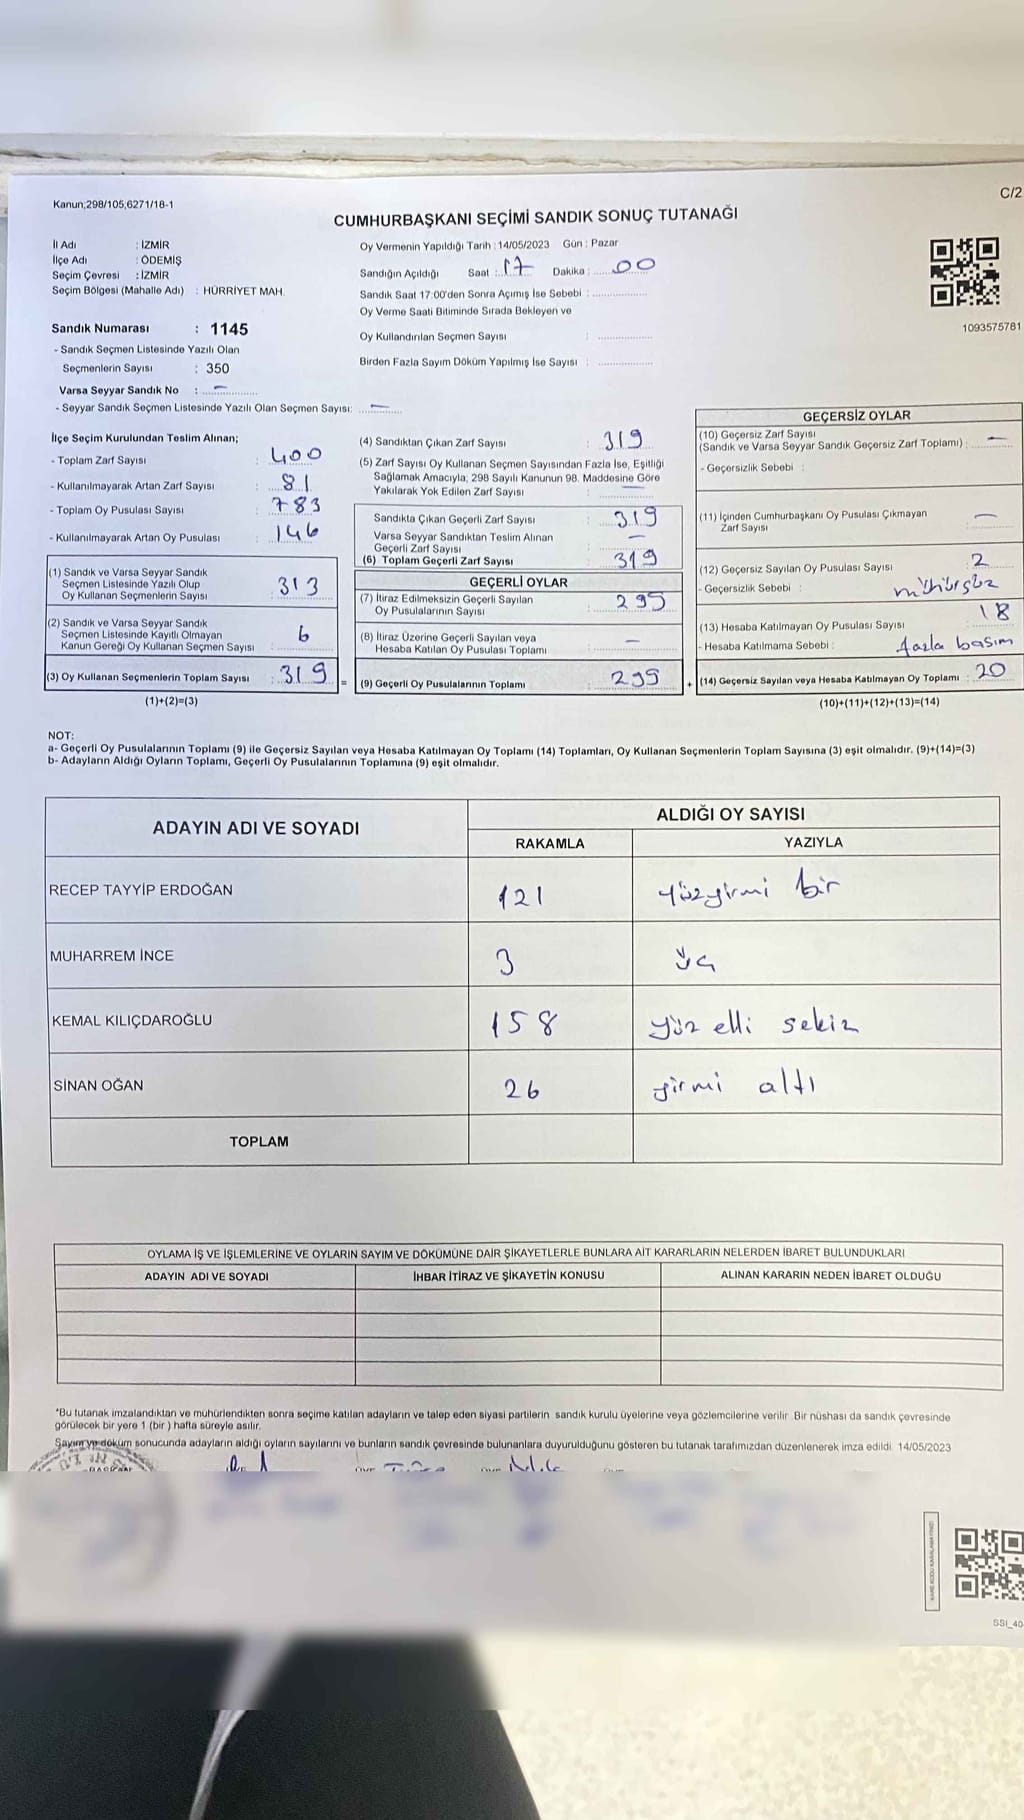 Kanun;298/105;6271/18-1
C/2
CUMHURBAŞKANI SEÇİMİ SANDIK SONUÇ TUTANAĞI
İl Adı : İZMİR
İlçe Adı : ÖDEMİŞ
Seçim Çevresi : İZMİR
Seçim Bölgesi (Mahalle Adı) : HÜRRİYET MAH.
Oy Vermenin Yapıldığı Tarih : 14/05/2023 Gün : Pazar
Sandığın Açıldığı Saat : 17 Dakika : 00
Sandık Saat 17:00'den Sonra Açımış İse Sebebi :
Oy Verme Saati Bitiminde Sırada Bekleyen ve
Oy Kullandırılan Seçmen Sayısı :
Birden Fazla Sayım Döküm Yapılmış İse Sayısı :
1093575781
Sandık Numarası : 1145
- Sandık Seçmen Listesinde Yazılı Olan
Seçmenlerin Sayısı : 350
Varsa Seyyar Sandık No : —
- Seyyar Sandık Seçmen Listesinde Yazılı Olan Seçmen Sayısı: —
İlçe Seçim Kurulundan Teslim Alınan;
- Toplam Zarf Sayısı : 400
- Kullanılmayarak Artan Zarf Sayısı : 81
- Toplam Oy Pusulası Sayısı : 783
- Kullanılmayarak Artan Oy Pusulası : 146
(1) Sandık ve Varsa Seyyar Sandık
Seçmen Listesinde Yazılı Olup
Oy Kullanan Seçmenlerin Sayısı : 313
(2) Sandık ve Varsa Seyyar Sandık
Seçmen Listesinde Kayıtlı Olmayan
Kanun Gereği Oy Kullanan Seçmen Sayısı : 6
(3) Oy Kullanan Seçmenlerin Toplam Sayısı : 319
(1)+(2)=(3)
=
(4) Sandıktan Çıkan Zarf Sayısı : 319
(5) Zarf Sayısı Oy Kullanan Seçmen Sayısından Fazla İse, Eşitliği
Sağlamak Amacıyla; 298 Sayılı Kanunun 98. Maddesine Göre
Yakılarak Yok Edilen Zarf Sayısı : —
Sandıkta Çıkan Geçerli Zarf Sayısı : 319
Varsa Seyyar Sandıktan Teslim Alınan
Geçerli Zarf Sayısı : —
(6) Toplam Geçerli Zarf Sayısı : 319
GEÇERLİ OYLAR
(7) İtiraz Edilmeksizin Geçerli Sayılan
Oy Pusulalarının Sayısı : 295
(8) İtiraz Üzerine Geçerli Sayılan veya
Hesaba Katılan Oy Pusulası Toplamı : —
(9) Geçerli Oy Pusulalarının Toplamı : 299
+
GEÇERSİZ OYLAR
(10) Geçersiz Zarf Sayısı
(Sandık ve Varsa Seyyar Sandık Geçersiz Zarf Toplamı) : —
- Geçersizlik Sebebi :
(11) İçinden Cumhurbaşkanı Oy Pusulası Çıkmayan
Zarf Sayısı : —
(12) Geçersiz Sayılan Oy Pusulası Sayısı : 2
- Geçersizlik Sebebi : mühürsüz
(13) Hesaba Katılmayan Oy Pusulası Sayısı : 18
- Hesaba Katılmama Sebebi : fazla basım
(14) Geçersiz Sayılan veya Hesaba Katılmayan Oy Toplamı : 20
(10)+(11)+(12)+(13)=(14)
NOT:
a- Geçerli Oy Pusulalarının Toplamı (9) ile Geçersiz Sayılan veya Hesaba Katılmayan Oy Toplamı (14) Toplamları, Oy Kullanan Seçmenlerin Toplam Sayısına (3) eşit olmalıdır. (9)+(14)=(3)
b- Adayların Aldığı Oyların Toplamı, Geçerli Oy Pusulalarının Toplamına (9) eşit olmalıdır.
ADAYIN ADI VE SOYADI ALDIĞI OY SAYISI
RAKAMLA YAZIYLA
RECEP TAYYİP ERDOĞAN 121 yüzyirmi bir
MUHARREM İNCE 3 üç
KEMAL KILIÇDAROĞLU 158 yüz elli sekiz
SİNAN OĞAN 26 yirmi altı
TOPLAM
OYLAMA İŞ VE İŞLEMLERİNE VE OYLARIN SAYIM VE DÖKÜMÜNE DAİR ŞİKAYETLERLE BUNLARA AİT KARARLARIN NELERDEN İBARET BULUNDUKLARI
ADAYIN ADI VE SOYADI İHBAR İTİRAZ VE ŞİKAYETİN KONUSU ALINAN KARARIN NEDEN İBARET OLDUĞU
*Bu tutanak imzalandıktan ve mühürlendikten sonra seçime katılan adayların ve talep eden siyasi partilerin sandık kurulu üyelerine veya gözlemcilerine verilir. Bir nüshası da sandık çevresinde
görülecek bir yere 1 (bir ) hafta süreyle asılır.
Sayım ve döküm sonucunda adayların aldığı oyların sayılarını ve bunların sandık çevresinde bulunanlara duyurulduğunu gösteren bu tutanak tarafımızdan düzenlenerek imza edildi. 14/05/2023
SSI_40